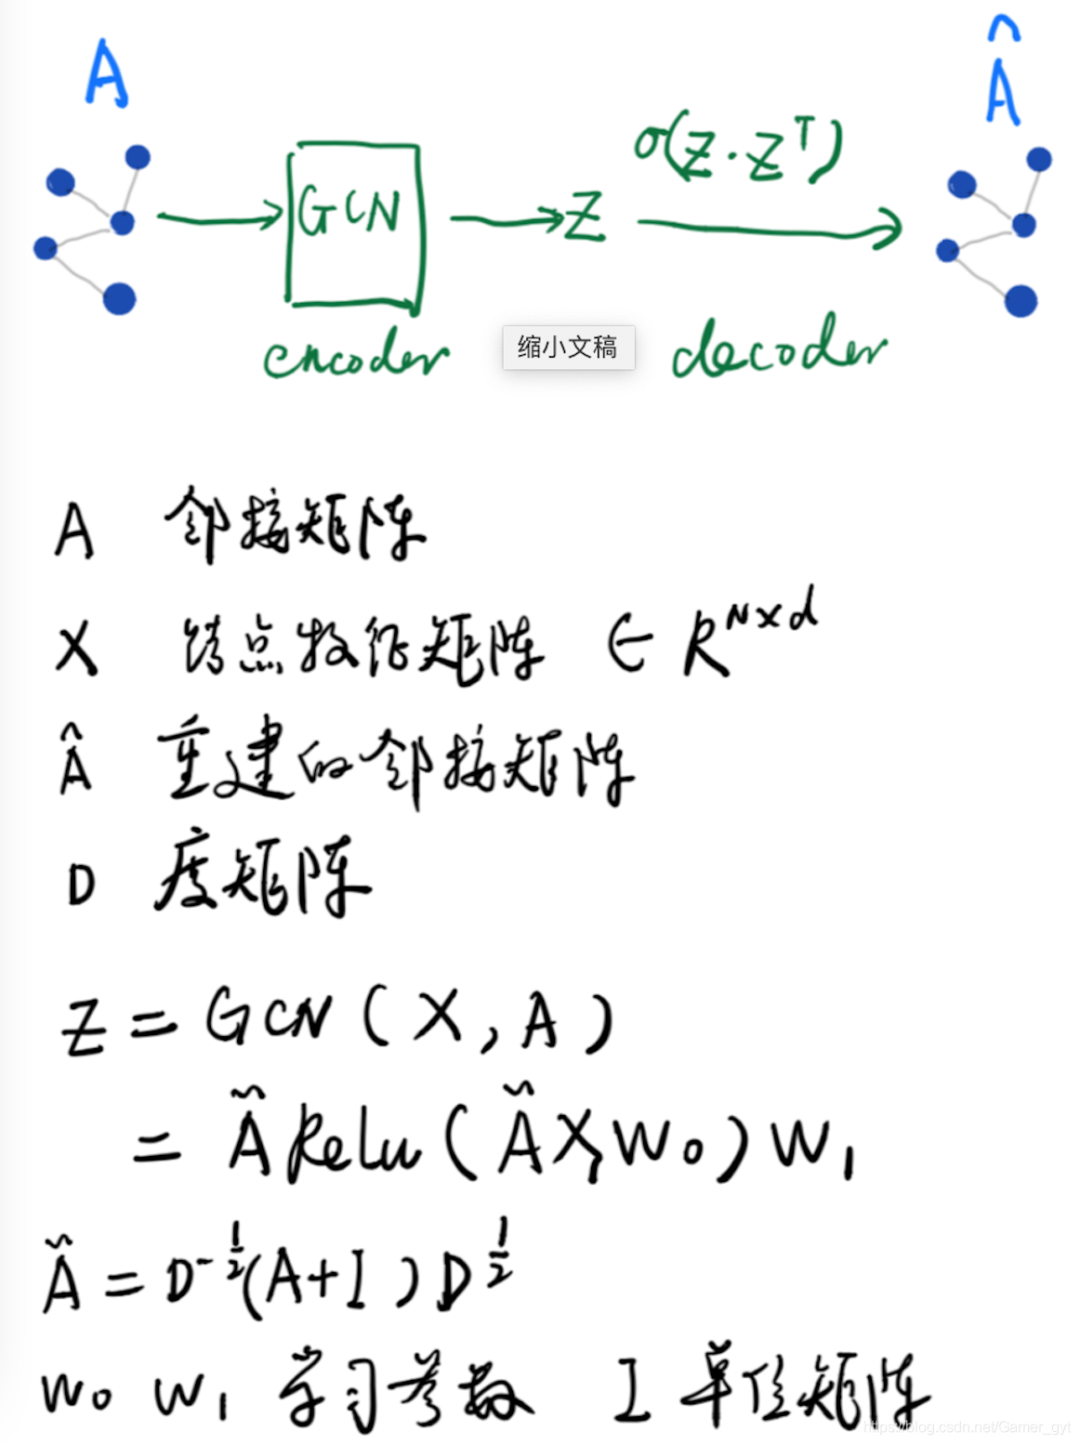 A
Â
GCN
Z
σ(Z·Zᵀ)
encoder
缩小文稿
decoder
A 邻接矩阵
X 结点特征矩阵 ∈ R^{N×d}
Â 重建的邻接矩阵
D 度矩阵
Z = GCN(X, A)
= Ã Relu(ÃXW₀)W₁
Ã = D^{-1/2}(A+I)D^{1/2}
W₀ W₁ 学习参数 I 单位矩阵
https://blog.csdn.net/Gamer_gyt